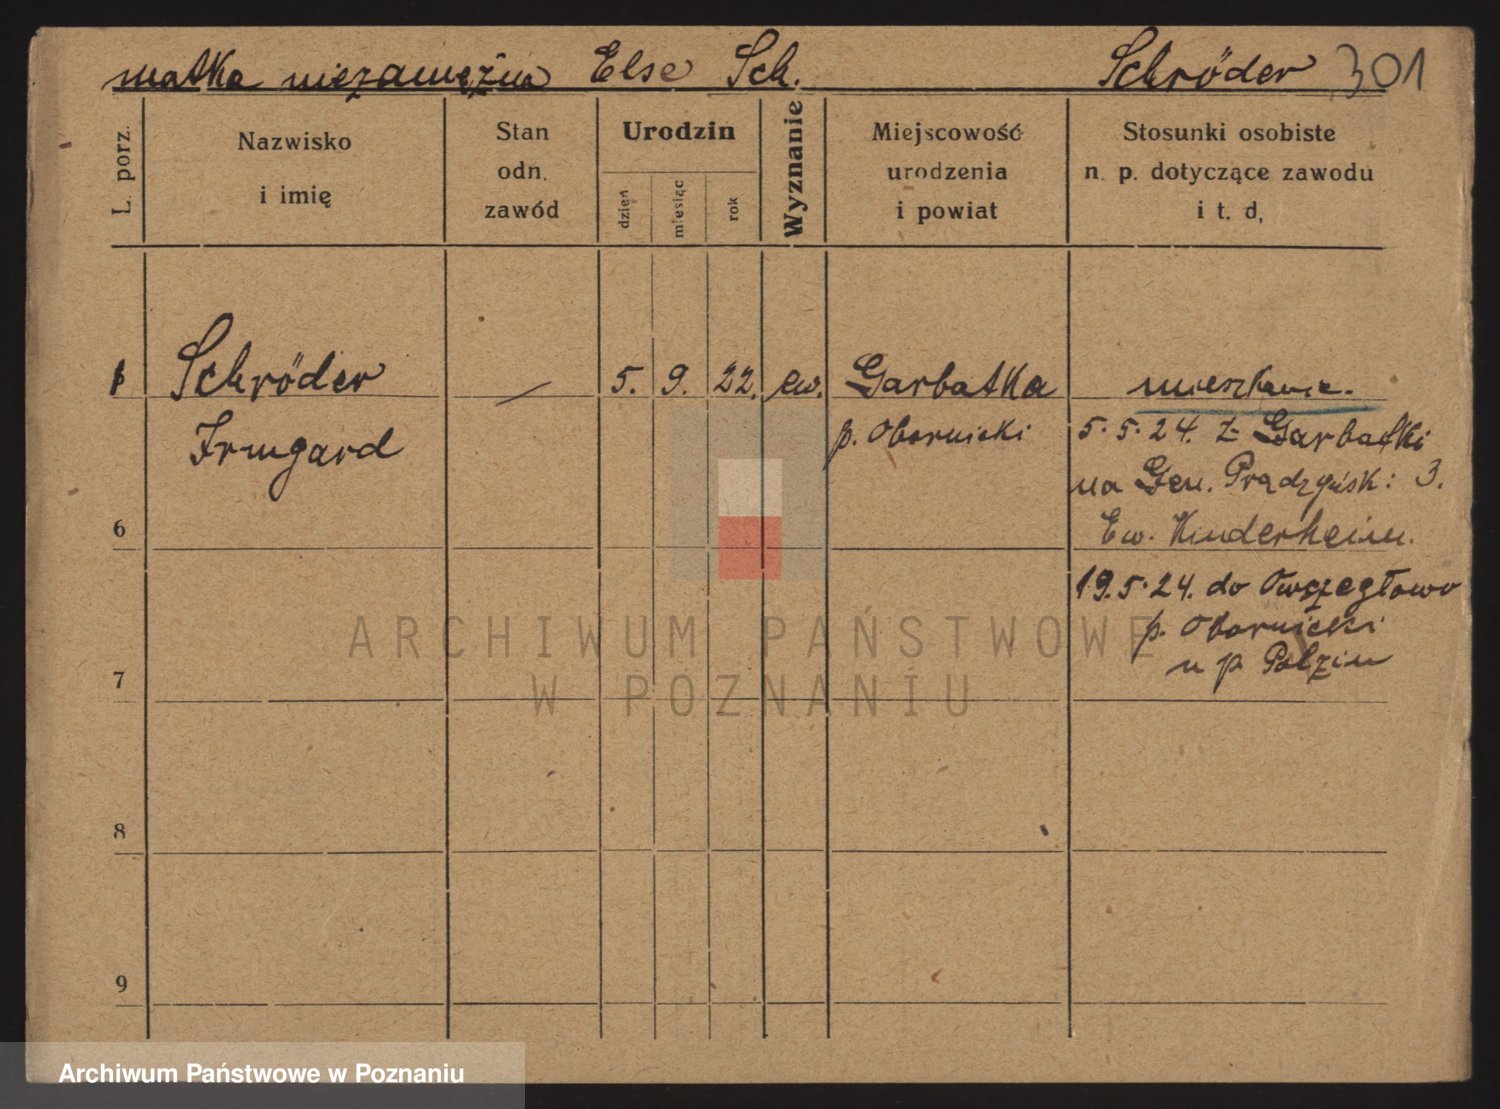 matka niezamężna Else Sch. Schröder 301
L. porz.
Nazwisko
i imię
Stan
odn.
zawód
Urodzin
dzień
miesiąc
rok
Wyznanie
Miejscowość
urodzenia
i powiat
Stosunki osobiste
n. p. dotyczące zawodu
i t. d.
Schröder
Irmgard
5. 9. 22. ew.
Garbatka
p. Obornicki
mieszkanie.
5.5.24. z Garbatki
na Gen. Prądzyńsk: 3.
Ew. Kinderheim.
19.5.24. do Owczegłowo
p. Obornicki
u p. Polzin
6
7
8
9
ARCHIWUM PAŃSTWOWE
W POZNANIU
Archiwum Państwowe w Poznaniu